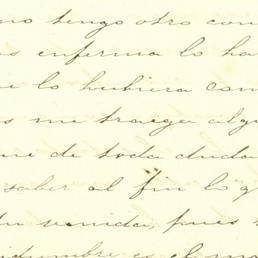 no tengo otro con
s enferma lo ha
e lo hubiera com
s me traega alg
ue de toda duda
saber al fin lo q
tu venida, pues
idumbre es el ma